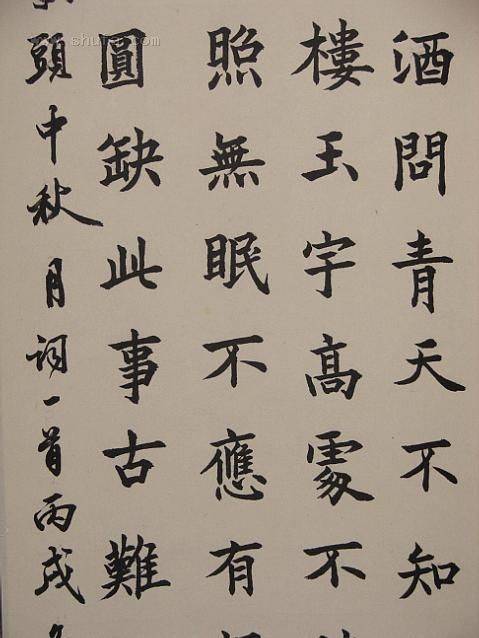 酒問青天不知
樓玉宇高處不
照無眠不應有
圓缺此事古難
頭中秋月詞一首丙戌